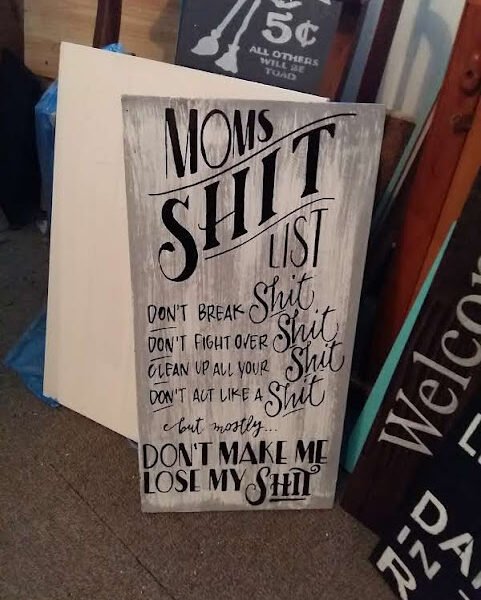 5¢
ALL OTHERS
WILL BE
TOAD
MOMS
SHIT
LIST
DON'T BREAK Shit
DON'T FIGHT OVER Shit
CLEAN UP ALL YOUR Shit
DON'T ACT LIKE A Shit
but mostly...
DON'T MAKE ME
LOSE MY SHIT